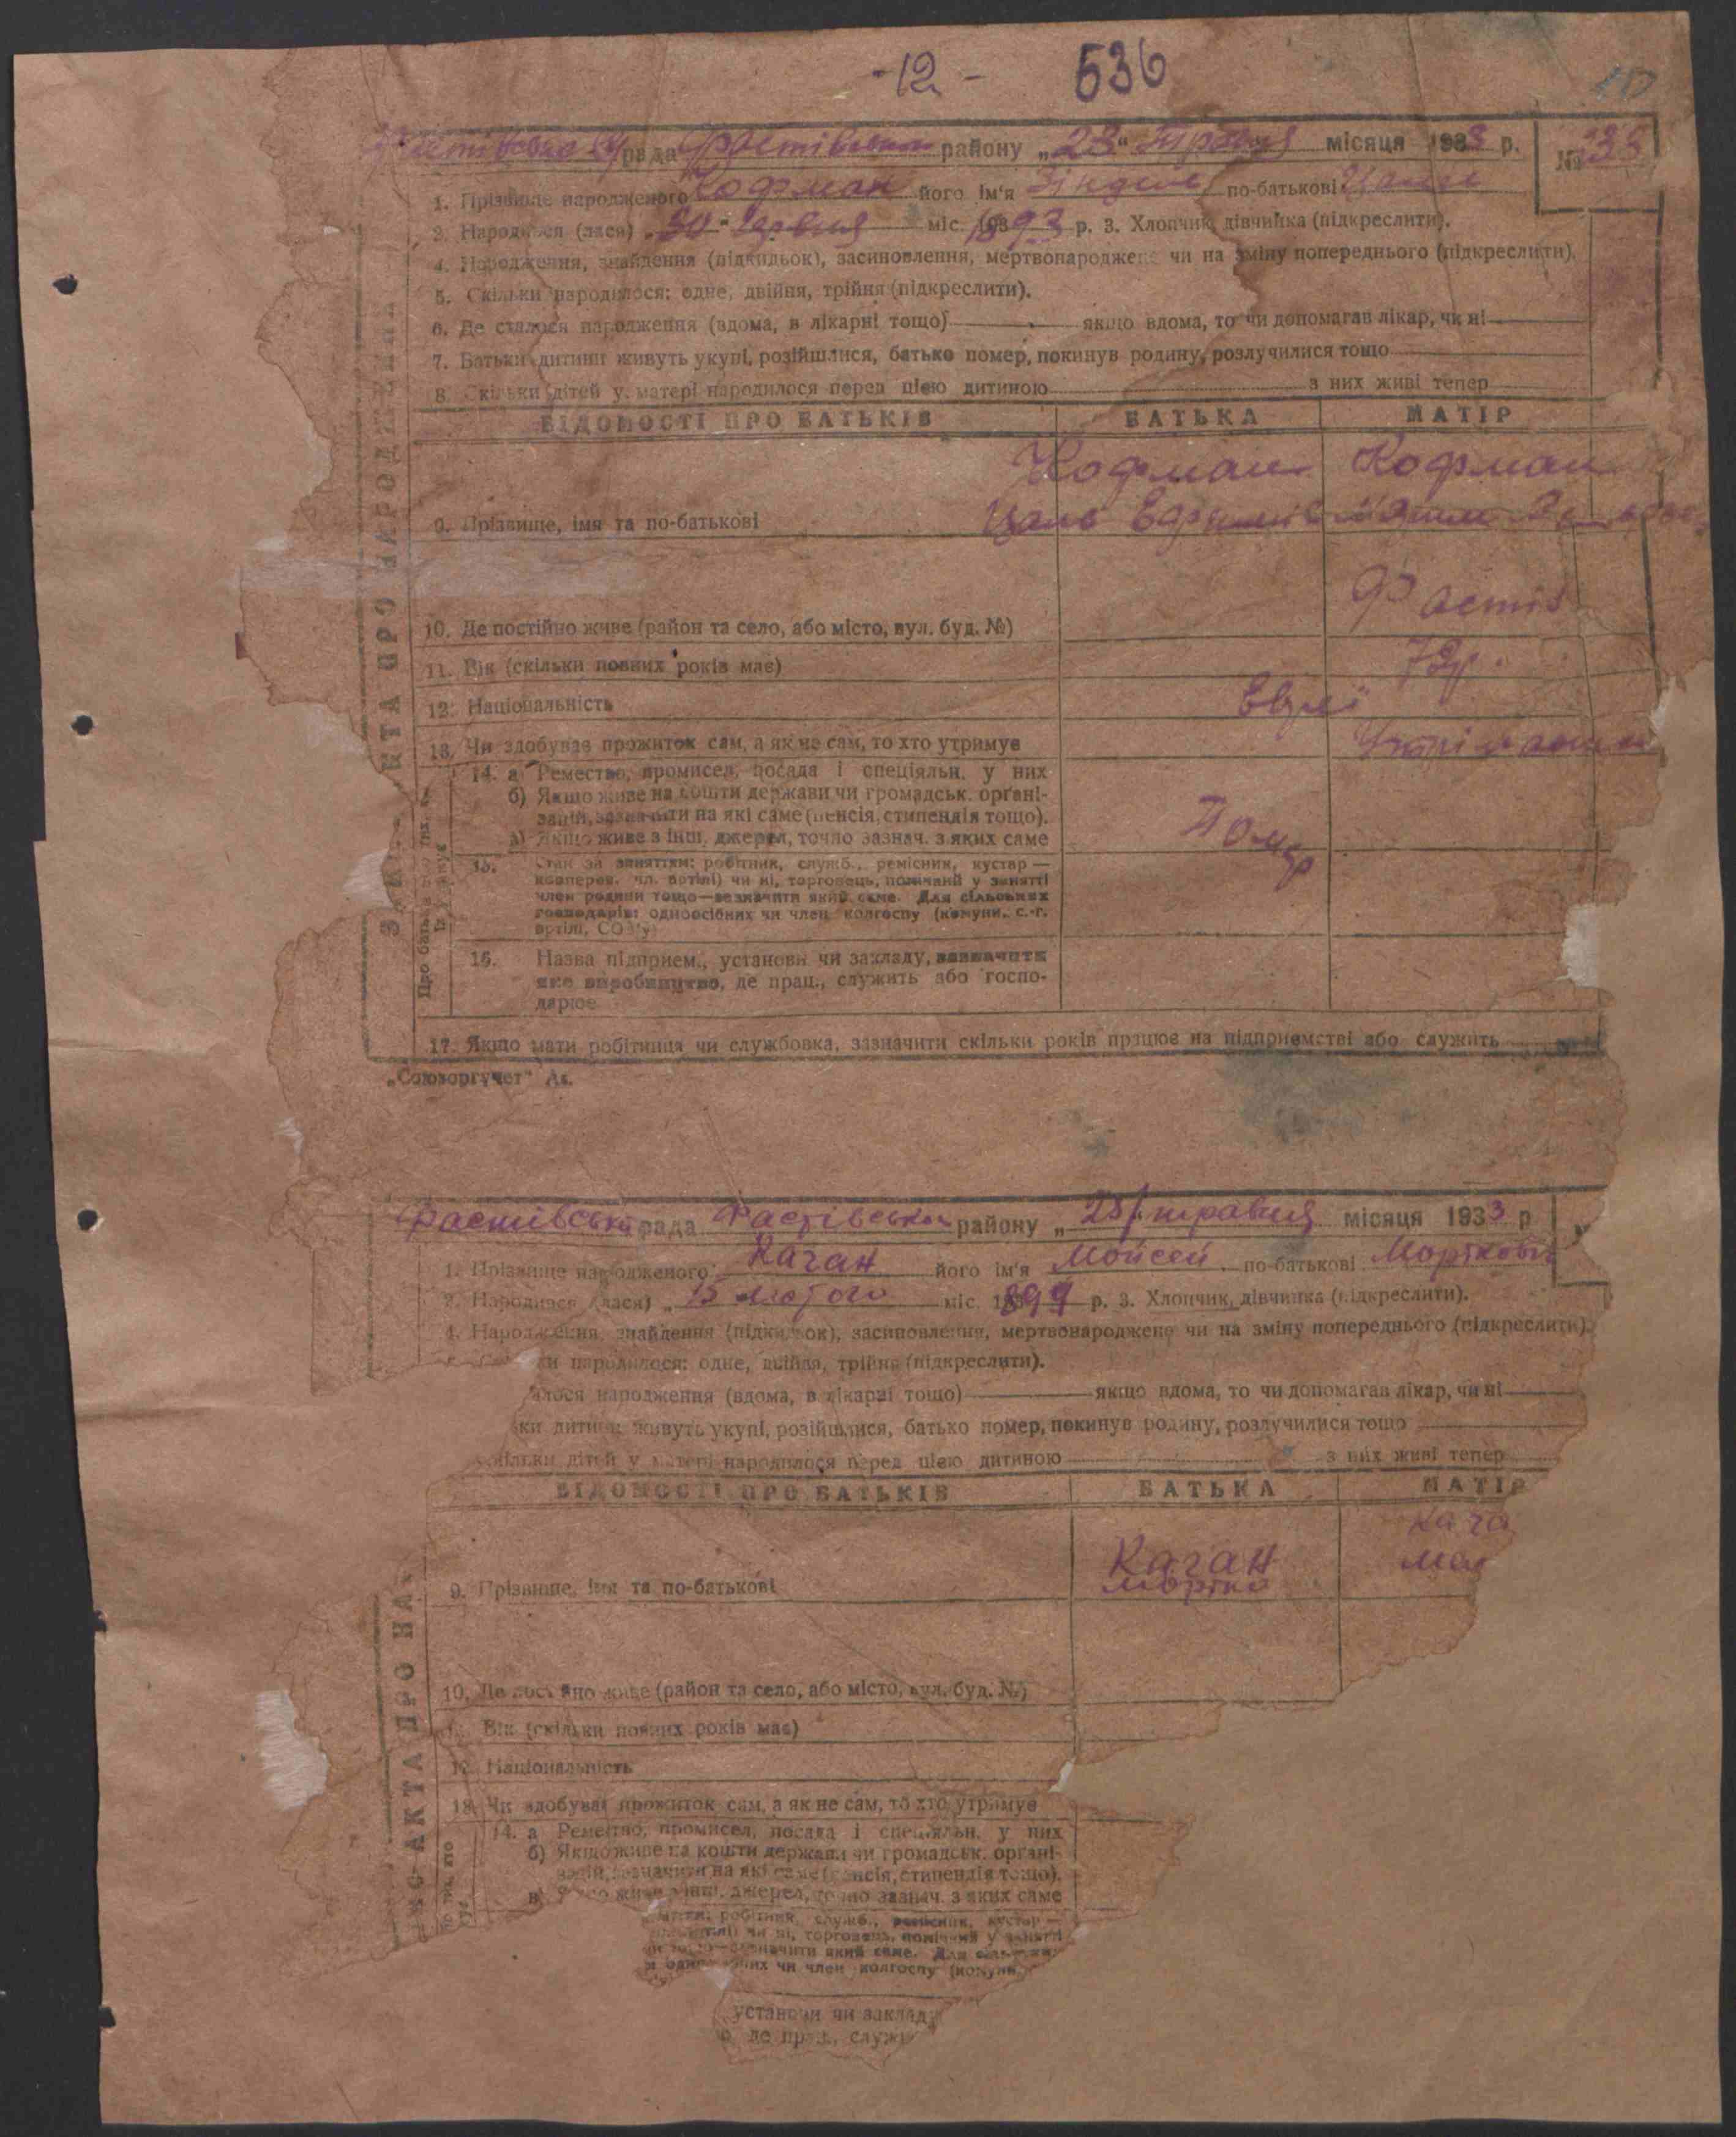 -12- 636
Фастівська рада Фастівськ району „23“ Травня місяця 1933 р. №
1. Прізвище народженого Кофман його ім'я по-батькові
2. Народився (лася) „30“ Червня міс. 1893 р. 3. Хлопчик, дівчинка (підкреслити).
4. Народження, знайдення (підкидьок), засиновлення, мертвонароджене чи на зміну попереднього (підкреслити).
5. Скільки народилося: одне, двійня, трійня (підкреслити).
6. Де сталося народження (вдома, в лікарні тощо) якщо вдома, то чи допомагав лікар, чи ні
7. Батьки дитини живуть укупі, розійшлися, батько помер, покинув родину, розлучилися тощо
8. Скільки дітей у матері народилося перед цією дитиною з них живі тепер
ВІДОМОСТІ ПРО БАТЬКІВ БАТЬКА МАТІР
Кофман Кофман
9. Прізвище, імя та по-батькові Цаль
Фастів
10. Де постійно живе (район та село, або місто, вул. буд. №)
11. Вік (скільки повних років має) 72р.
12. Національність Евреї
13. Чи здобуває прожиток сам, а як не сам, то хто утримує
14. а Ремество, промисел, посада і спеціяльн. у них
б) Якщо живе на кошти держави чи громадськ. органі-
зацій, зазначити на які саме (пенсія, стипендія тощо).
в) Якщо живе з інш. джерел, точно зазнач. з яких саме
Помер
15. Стан за заняттям: робітник, служб., ремісник, кустар —
коопер. чл. артілі) чи ні, торговець, помічний у занятті
член родини тощо—зазначити який саме. Для сільських
господарів: одноосібних чи член колгоспу (комуни, с.-г.
артілі, СОЗ'у)
16. Назва підприєм., установи чи закладу, зазначити
яке виробництво, де прац., служить або госпо-
дарює
17. Якщо мати робітниця чи службовка, зазначити скільки років працює на підприємстві або служить
„Союзоргучет“
Фастівська рада Фастівськ району „ 23/ травня місяця 1933 р
1. Прізвище народженого Каган його ім'я Мойсей по-батькові Мортков
2. Народився (лася) „ 15 лютого міс. 189 р. 3. Хлопчик, дівчинка (підкреслити).
4. Народження, знайдення (підкидьок), засиновлення, мертвонароджене чи на зміну попереднього (підкреслити)
ки народилося: одне, двійня, трійня (підкреслити).
алося народження (вдома, в лікарні тощо) якщо вдома, то чи допомагав лікар, чи ні
ки дитини живуть укупі, розійшлися, батько помер, покинув родину, розлучилися тощо
Скільки дітей у матері народилося перед цією дитиною з них живі тепер
ВІДОМОСТІ ПРО БАТЬКІВ БАТЬКА МАТІР
Кага
Каган Мал
9. Прізвище, імя та по-батькові Мортко
10. Де постійно живе (район та село, або місто, вул. буд. №)
Вік (скільки повних років має)
12. Національність
13. Чи здобуває прожиток сам, а як не сам, то хто утримує
14. а Ремество, промисел, посада і спеціяльн. у них
б) Якщо живе на кошти держави чи громадськ. органі-
зацій, зазначити на які саме (пенсія, стипендія тощо).
в) Якщо живе з інш. джерел, точно зазнач. з яких саме
робітник, служб., ремісник, кустар —
чи ні, торговець, помічний у занятті
тощо—зазначити який саме. Для
чи член колгоспу (комуни,
установи чи заклад
де прац., служи